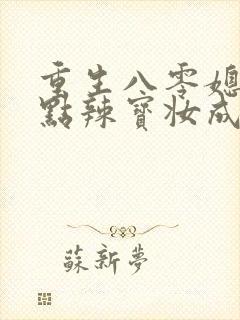 重生八零媳
點辣寶妝成
蘇新夢